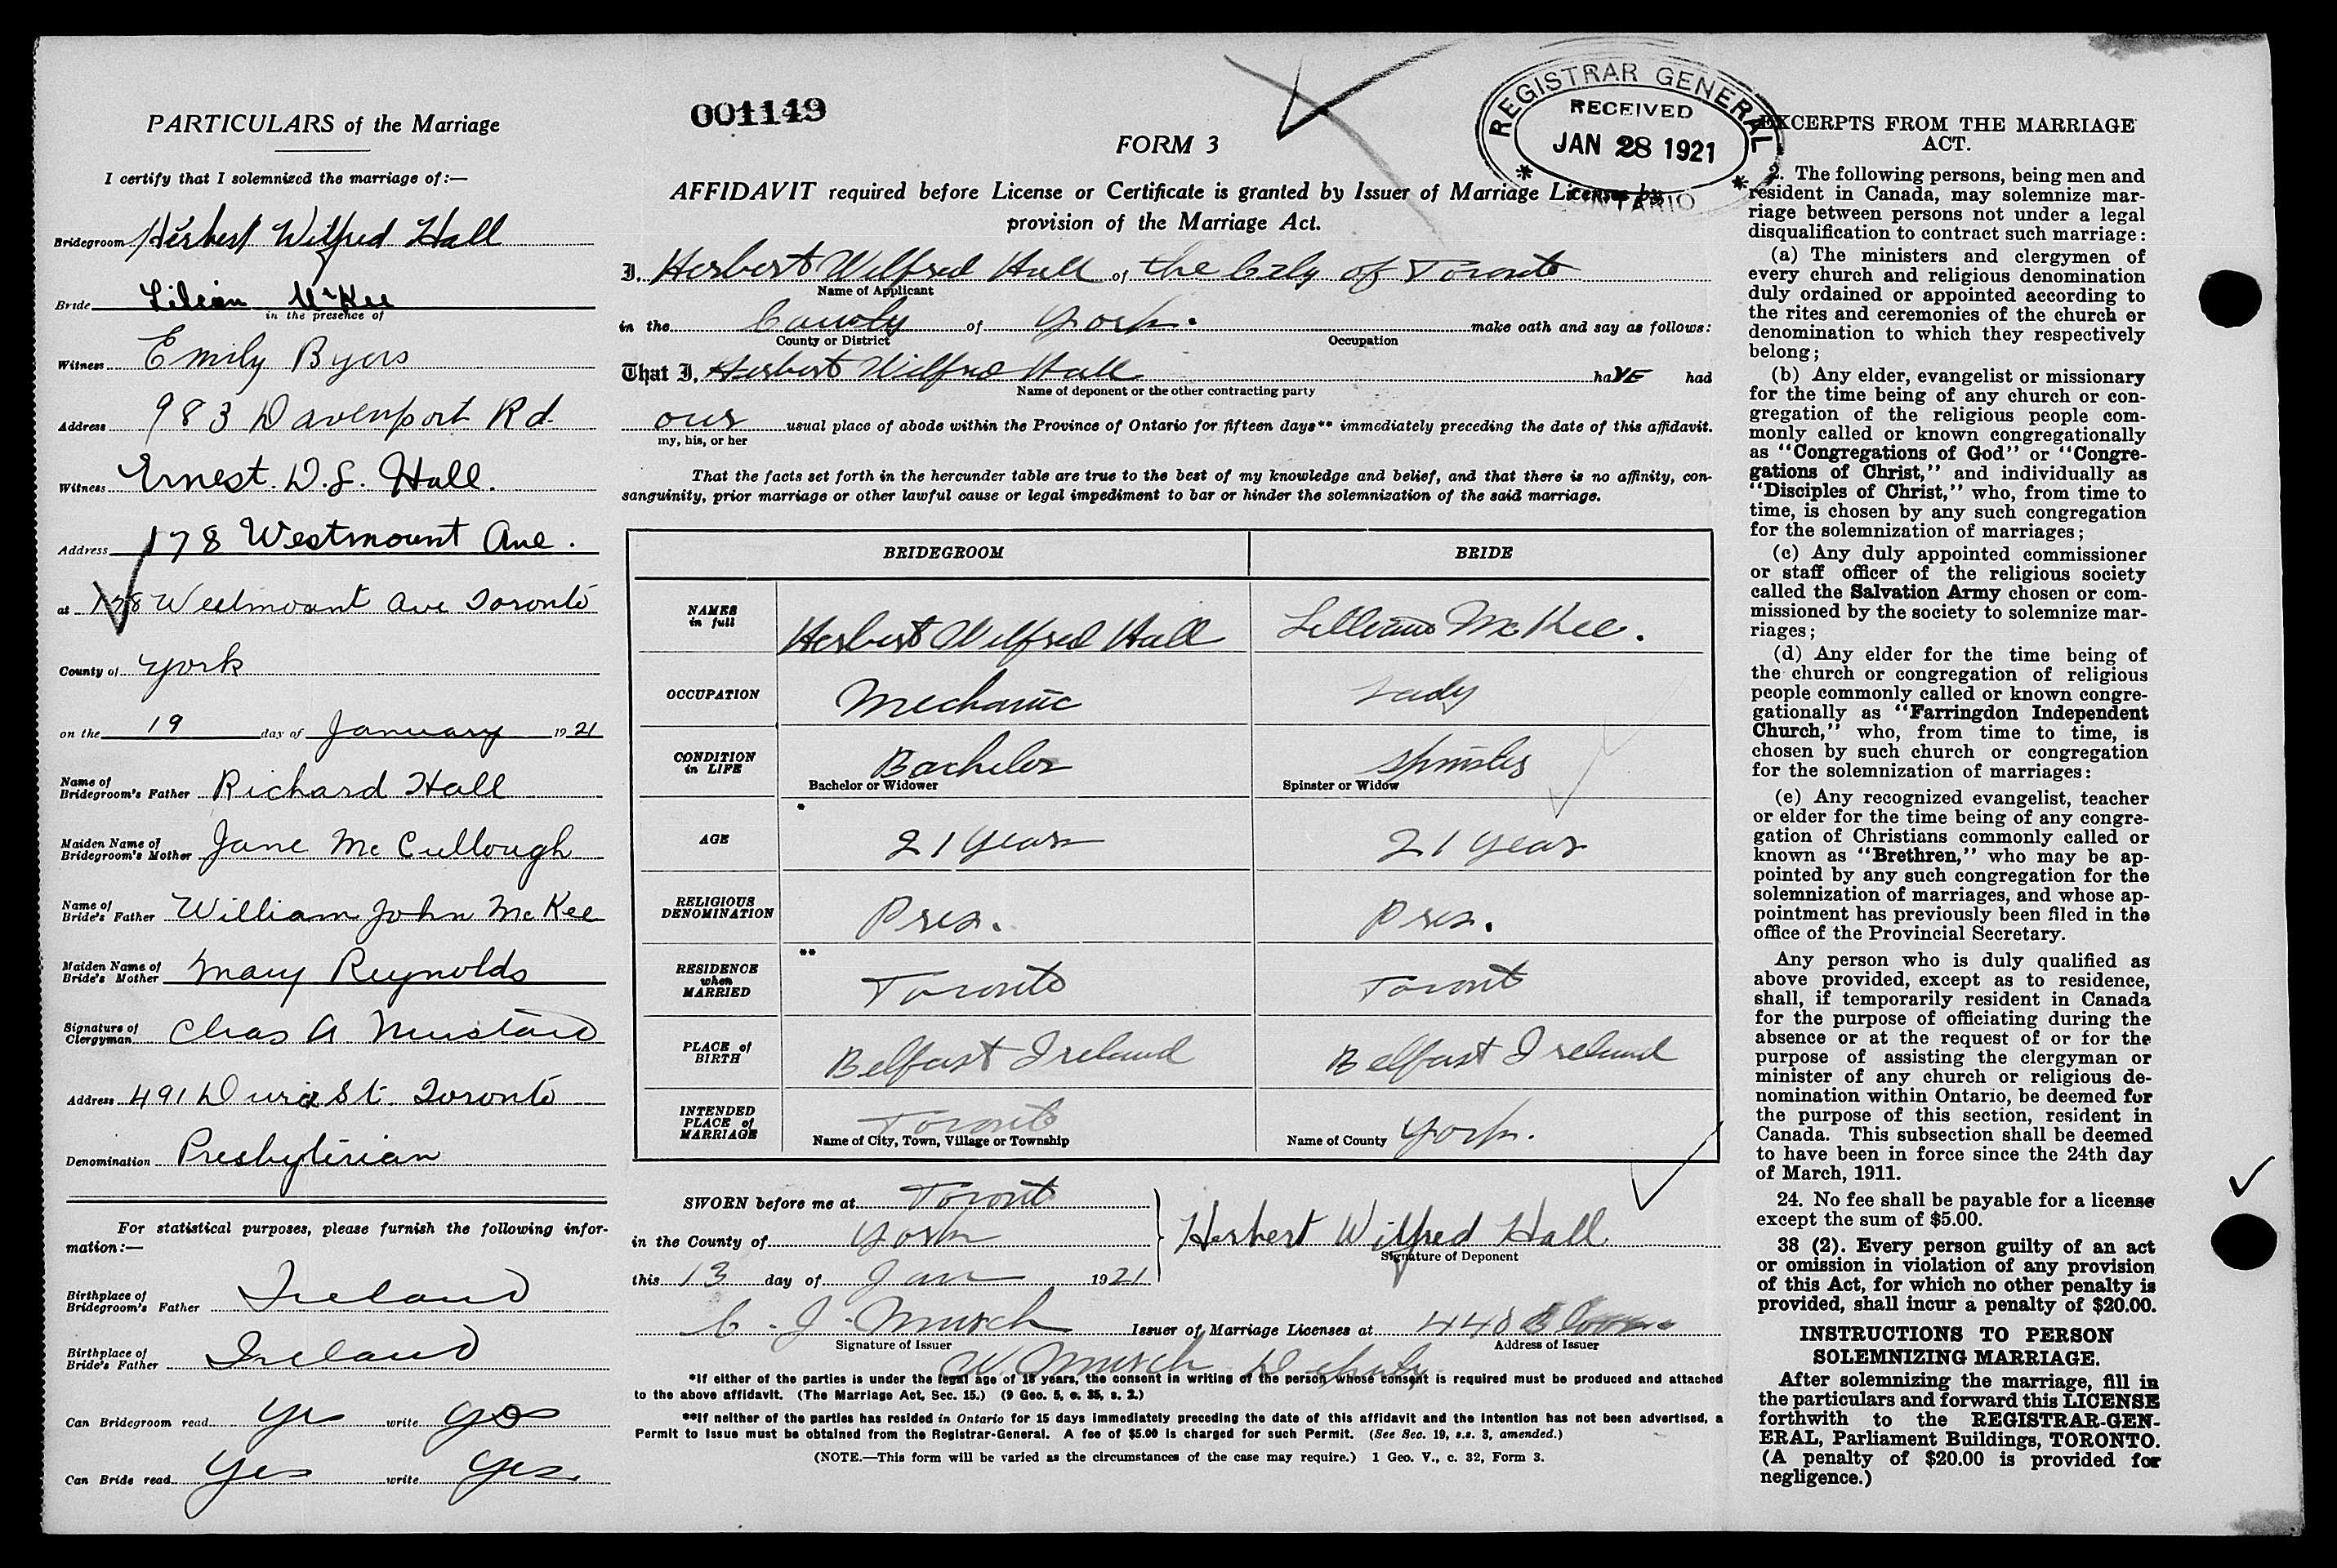 PARTICULARS of the Marriage
I certify that I solemnized the marriage of:—
Bridegroom Herbert Wilfred Hall
Bride Lilian McKee
in the presence of
Witness Emily Byers
Address 983 Davenport Rd.
Witness Ernest. D. S. Hall.
Address 178 Westmount Ave.
at 178 Westmount Ave Toronto
County of York
on the 19 day of January 1921
Name of Bridegroom's Father Richard Hall
Maiden Name of Bridegroom's Mother Jane McCullough
Name of Bride's Father William John McKee
Maiden Name of Bride's Mother Mary Reynolds
Signature of Clergyman Chas A Mustard
Address 491 Durie St. Toronto
Denomination Presbyterian
For statistical purposes, please furnish the following infor-
mation:—
Birthplace of Bridegroom's Father Ireland
Birthplace of Bride's Father Ireland
Can Bridegroom read yes write yes
Can Bride read yes write yes.
001149
FORM 3
REGISTRAR GENERAL
RECEIVED
JAN 28 1921
ONTARIO
AFFIDAVIT required before License or Certificate is granted by Issuer of Marriage Licenses by
provision of the Marriage Act.
I, Herbert Wilfred Hall of the City of Toronto
Name of Applicant
in the County of York. make oath and say as follows:
County or District Occupation
That I, Herbert Wilfred Hall haVE had
Name of deponent or the other contracting party
our usual place of abode within the Province of Ontario for fifteen days** immediately preceding the date of this affidavit.
my, his, or her
That the facts set forth in the hereunder table are true to the best of my knowledge and belief, and that there is no affinity, con-
sanguinity, prior marriage or other lawful cause or legal impediment to bar or hinder the solemnization of the said marriage.
BRIDEGROOM BRIDE
NAMES in full Herbert Wilfred Hall Lillian McKee.
OCCUPATION Mechanic Lady
CONDITION in LIFE Bachelor Spinster
Bachelor or Widower Spinster or Widow
* AGE 21 years 21 year
RELIGIOUS DENOMINATION Pres. Pres.
** RESIDENCE when MARRIED Toronto Toront
PLACE of BIRTH Belfast Ireland Belfast Ireland
INTENDED PLACE of MARRIAGE Toronto York.
Name of City, Town, Village or Township Name of County
SWORN before me at Toront
in the County of York
this 13 day of Jan 1921
Herbert Wilfred Hall
Signature of Deponent
C. J. Murch Issuer of Marriage Licenses at 440 Bloor
Signature of Issuer Address of Issuer
W. Murch Deputy
*If either of the parties is under the legal age of 18 years, the consent in writing of the person whose consent is required must be produced and attached
to the above affidavit. (The Marriage Act, Sec. 15.) (9 Geo. 5, c. 35, s. 2.)
**If neither of the parties has resided in Ontario for 15 days immediately preceding the date of this affidavit and the intention has not been advertised, a
Permit to Issue must be obtained from the Registrar-General. A fee of $5.00 is charged for such Permit. (See Sec. 19, s.s. 3, amended.)
(NOTE.—This form will be varied as the circumstances of the case may require.) 1 Geo. V., c. 32, Form 3.
EXCERPTS FROM THE MARRIAGE
ACT.
2. The following persons, being men and
resident in Canada, may solemnize mar-
riage between persons not under a legal
disqualification to contract such marriage:
(a) The ministers and clergymen of
every church and religious denomination
duly ordained or appointed according to
the rites and ceremonies of the church or
denomination to which they respectively
belong;
(b) Any elder, evangelist or missionary
for the time being of any church or con-
gregation of the religious people com-
monly called or known congregationally
as "Congregations of God" or "Congre-
gations of Christ," and individually as
"Disciples of Christ," who, from time to
time, is chosen by any such congregation
for the solemnization of marriages;
(c) Any duly appointed commissioner
or staff officer of the religious society
called the Salvation Army chosen or com-
missioned by the society to solemnize mar-
riages;
(d) Any elder for the time being of
the church or congregation of religious
people commonly called or known congre-
gationally as "Farringdon Independent
Church," who, from time to time, is
chosen by such church or congregation
for the solemnization of marriages:
(e) Any recognized evangelist, teacher
or elder for the time being of any congre-
gation of Christians commonly called or
known as "Brethren," who may be ap-
pointed by any such congregation for the
solemnization of marriages, and whose ap-
pointment has previously been filed in the
office of the Provincial Secretary.
Any person who is duly qualified as
above provided, except as to residence,
shall, if temporarily resident in Canada
for the purpose of officiating during the
absence or at the request of or for the
purpose of assisting the clergyman or
minister of any church or religious de-
nomination within Ontario, be deemed for
the purpose of this section, resident in
Canada. This subsection shall be deemed
to have been in force since the 24th day
of March, 1911.
24. No fee shall be payable for a license
except the sum of $5.00.
38 (2). Every person guilty of an act
or omission in violation of any provision
of this Act, for which no other penalty is
provided, shall incur a penalty of $20.00.
INSTRUCTIONS TO PERSON
SOLEMNIZING MARRIAGE.
After solemnizing the marriage, fill in
the particulars and forward this LICENSE
forthwith to the REGISTRAR-GEN-
ERAL, Parliament Buildings, TORONTO.
(A penalty of $20.00 is provided for
negligence.)